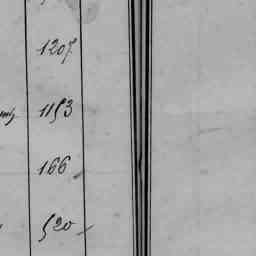 1207.
1153
166
520